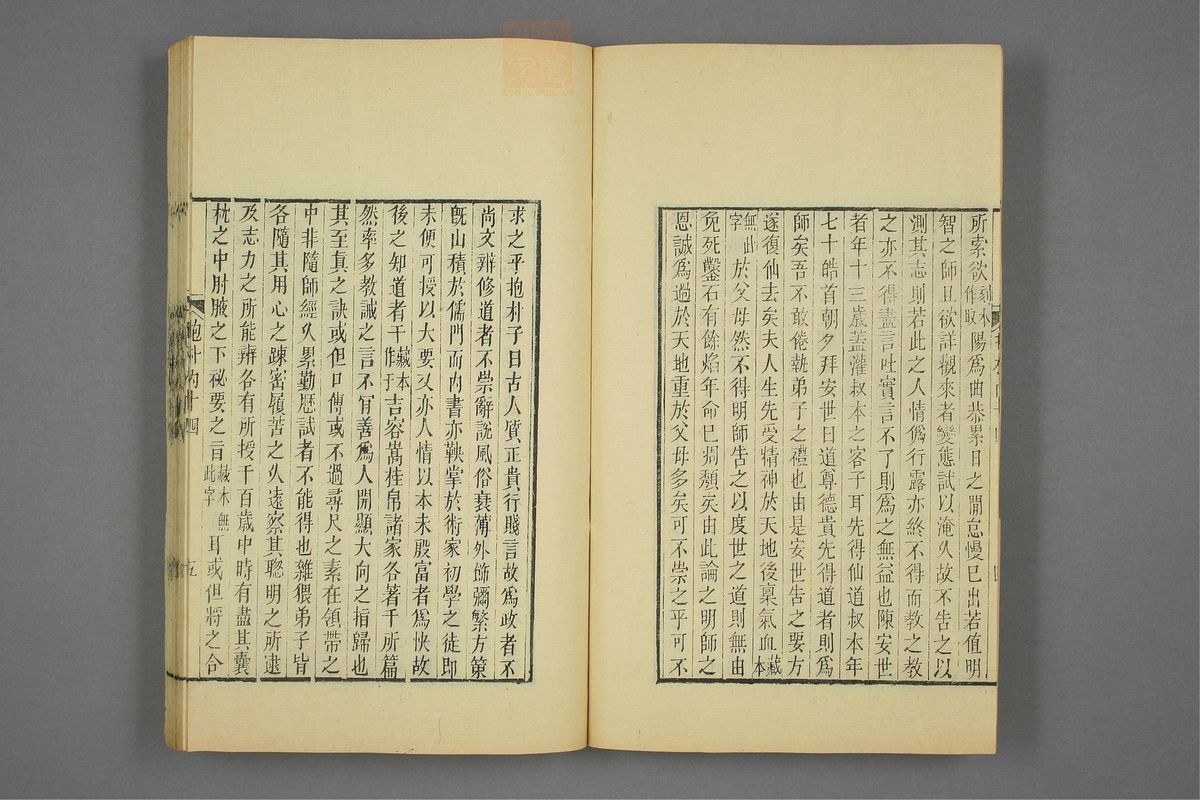 所索欲刻本作取陽爲曲恭累日之閒怠慢已出若值明
智之師且欲詳觀來者變態試以淹久故不告之以
測其志則若此之人情僞行露亦終不得而教之教
之亦不得盡言吐實言不了則爲之無益也陳安世
者年十三歲蓋灌叔本之客子耳先得仙道叔本年
七十皓首朝夕拜安世曰道尊德貴先得道者則爲
師矣吾不敢倦執弟子之禮也由是安世告之要方
遂復仙去矣夫人生先受精神於天地後稟氣血藏本
無此字於父母然不得明師告之以度世之道則無由
免死鑿石有餘焰年命已凋頹矣由此論之明師之
恩誠爲過於天地重於父母多矣可不崇之乎可不
求之乎抱朴子曰古人質正貴行賤言故爲政者不
尚文辨修道者不崇辭說風俗衰薄外飾彌繁方策
旣山積於儒門而內書亦鞅掌於術家初學之徒即
未便可授以大要又亦人情以本末殷富者爲快故
後之知道者干藏本作于吉容嵩桂帛諸家各著千所篇
然率多教誡之言不肯善爲人開顯大向之指歸也
其至真之訣或但口傳或不過尋尺之素在領帶之
中非隨師經久累勤歷試者不能得也雜猥弟子皆
各隨其用心之疎密履苦之久遠察其聰明之所逮
及志力之所能辨各有所授千百歲中時有盡其囊
枕之中肘腋之下祕要之旨藏本無此字耳或但將之合
抱朴內十四
五